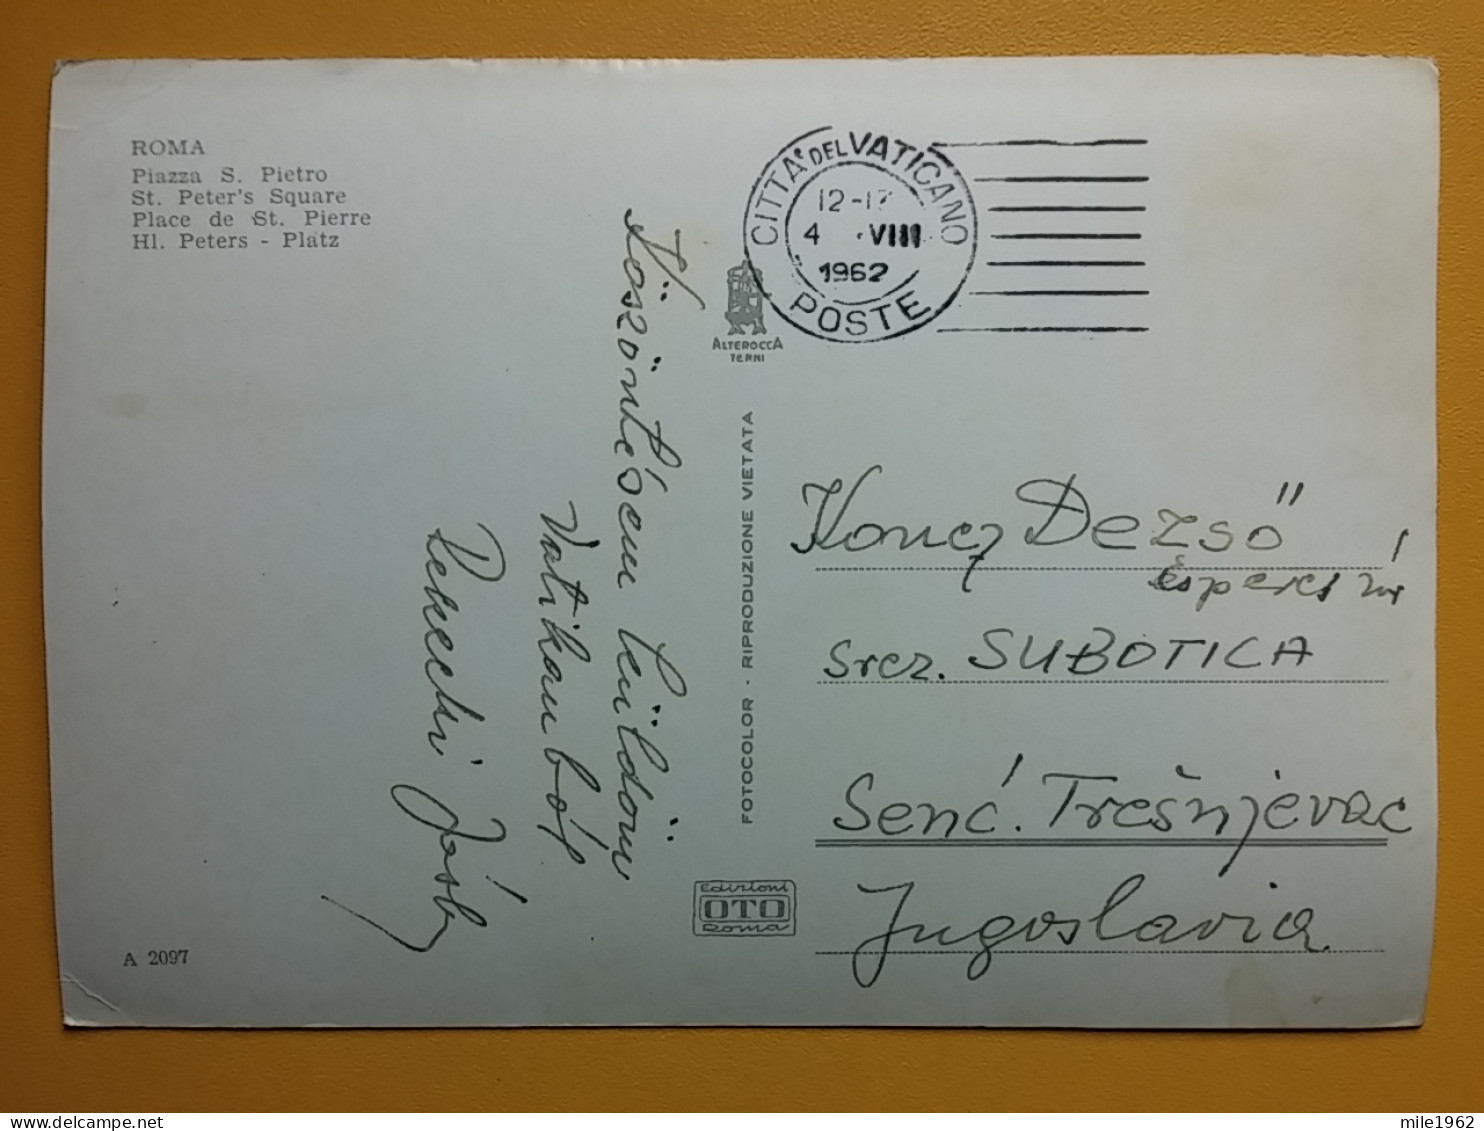 ROMA
Piazza S. Pietro
St. Peter's Square
Place de St. Pierre
Hl. Peters - Platz
CITTA' DEL VATICANO
12-17
4 VIII
1962
POSTE
ALTEROCCA
TERNI
Köszöntésem küldöm
Vatikanból
Pekechi József
FOTOCOLOR - RIPRODUZIONE VIETATA
Koncz Dezső
Esperes úr
srez. SUBOTICA
Senć. Trešnjevac
Jugoslavia
Edizioni
OTO
Roma
A 2097
mile1962